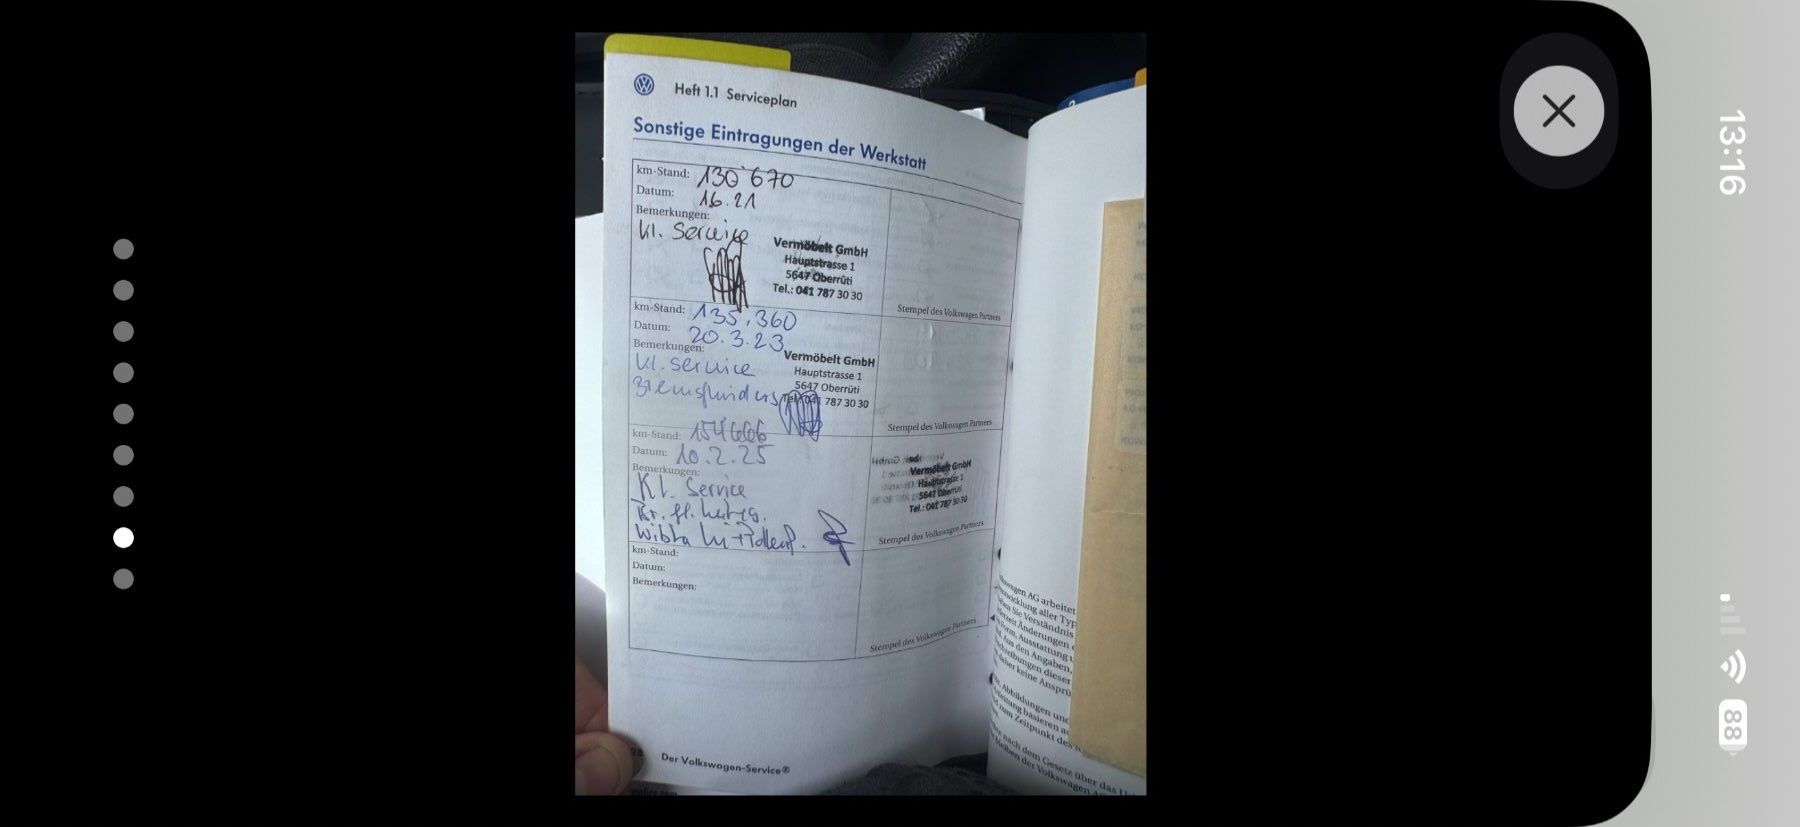 Heft 1.1 Serviceplan
Sonstige Eintragungen der Werkstatt
km-Stand: 130'670
Datum: 16.21
Bemerkungen:
Kl. Service
Vermöbelt GmbH
Hauptstrasse 1
5647 Oberrüti
Tel.: 041 787 30 30
Stempel des Volkswagen Partners
km-Stand: 135,360
Datum: 20.3.23
Bemerkungen:
Kl. service
Vermöbelt GmbH
Hauptstrasse 1
5647 Oberrüti
Tel.: 041 787 30 30
Stempel des Volkswagen Partners
km-Stand: 154666
Datum: 10.2.25
Bemerkungen:
Kl. Service
Br. fl.
Vermöbelt GmbH
Hauptstrasse 1
5647 Oberrüti
Tel.: 041 787 30 30
Stempel des Volkswagen Partners
km-Stand:
Datum:
Bemerkungen:
Stempel des Volkswagen Partners
Der Volkswagen-Service®
AG arbeitet
aller Typ
Sie Verständnis
Änderungen
Form, Ausstattung
Aus den Angaben,
dieser
daher keine Ansprü
Abbildungen und
basieren
zum Zeitpunkt des
nach dem Gesetz über das
der Volkswagen
13:16
88